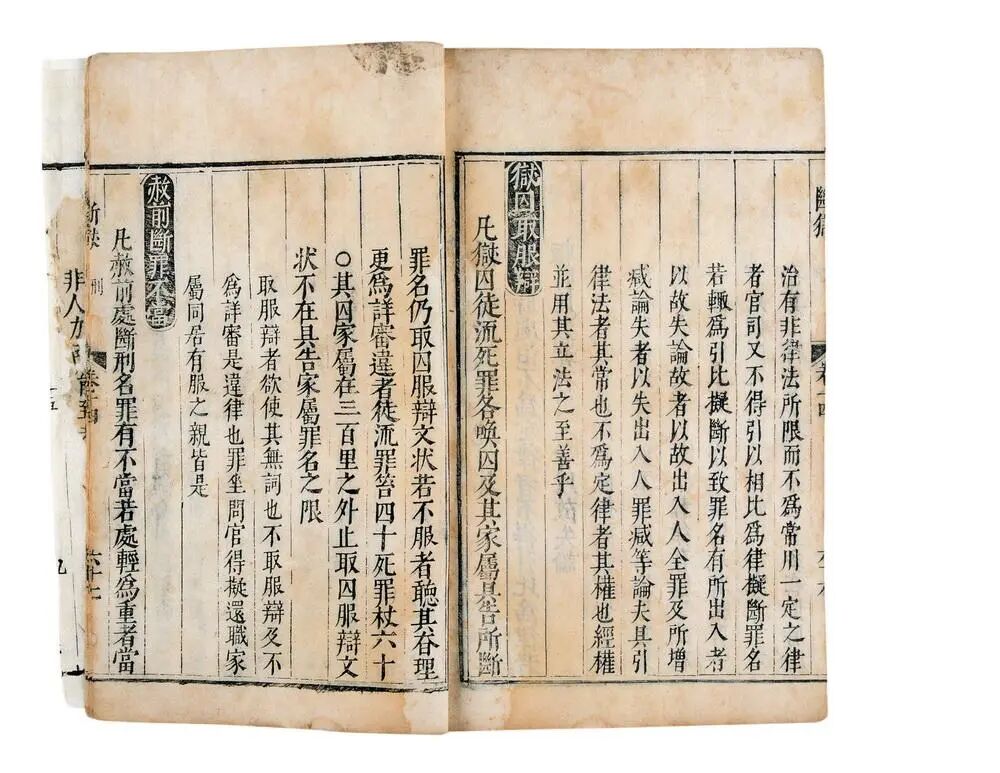 斷獄
治有非律法所限而不爲常用一定之律
者官司又不得引以相比爲律擬斷罪名
若輒爲引比擬斷以致罪名有所出入者
以故失論故者以故出入人全罪及所增
减論失者以失出入人罪减等論夫具引
律法者其常也不爲定律者其權也經權
並用其立法之至善乎
獄囚取服辯
凡獄囚徒流死罪各喚囚及其家屬具告所斷
罪名仍取囚服辯文狀若不服者聽其自理
更爲詳審違者徒流罪笞四十死罪杖六十
○其囚家屬在三百里之外止取囚服辯文
狀不在具告家屬罪名之限
取服辯者欲使其無詞也不取服辯及不
爲詳審是違律也罪坐問官得擬還職家
屬同居有服之親皆是
赦前斷罪不當
凡赦前處斷刑名罪有不當若處輕爲重者當